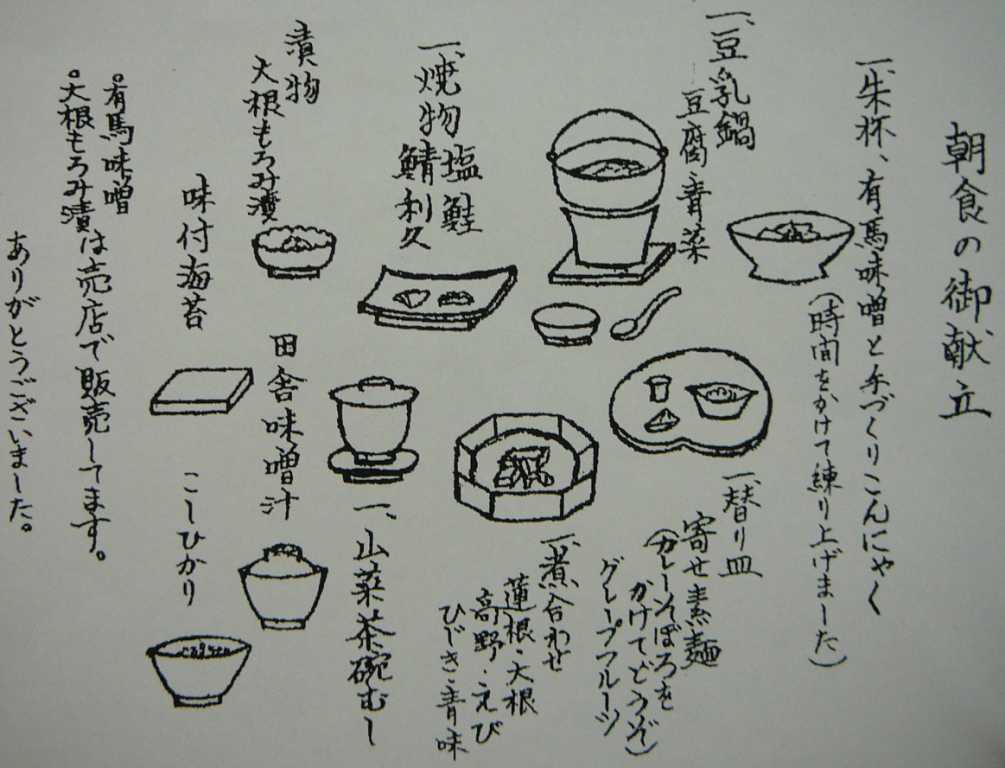 朝食の御献立
一、朱杯、有馬味噌と手づくりこんにゃく
(時間をかけて練り上げました)
一、豆乳鍋
豆腐・青菜
一、替り皿
寄せ素麺
(カレーそぼろを
かけてどうぞ)
グレープフルーツ
一、焼物塩鮭
鯖利久
一、煮合わせ
蓮根・大根
高野・えび
ひじき・青味
一、山菜茶碗むし
漬物
大根もろみ漬
田舎味噌汁
味付海苔
こしひかり
○有馬味噌
○大根もろみ漬は売店で販売してます。
ありがとうございました。